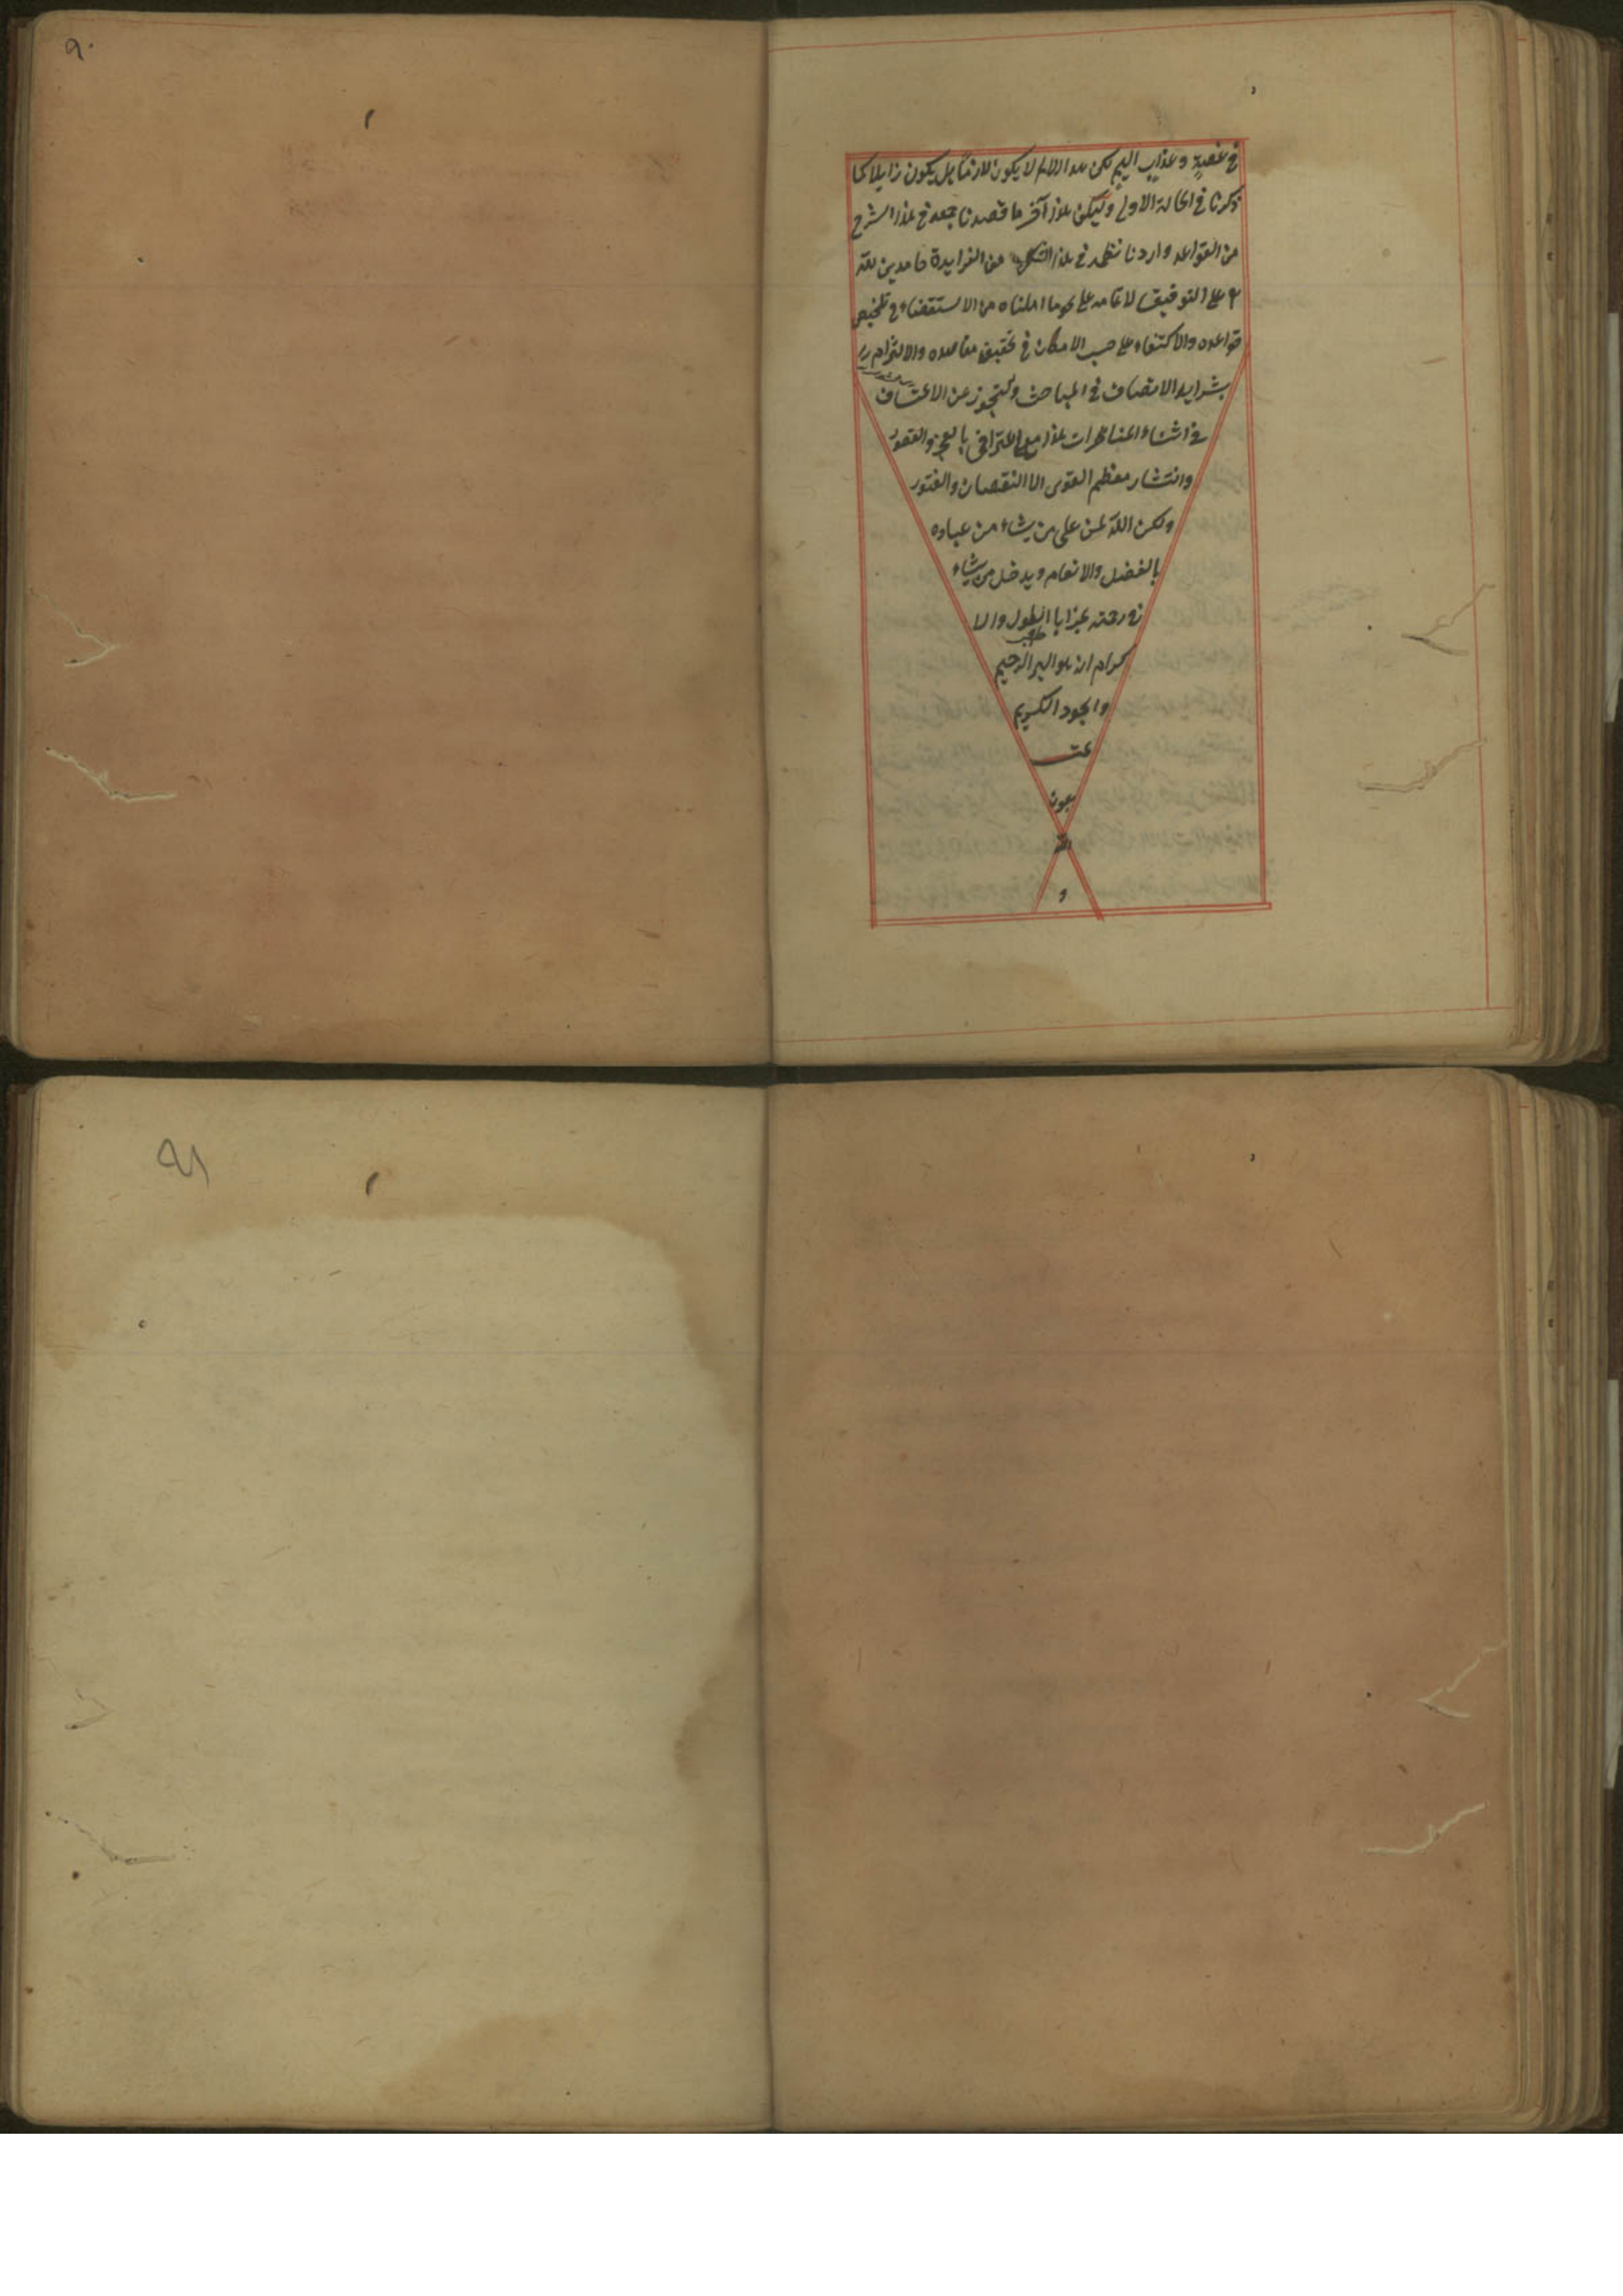 في غصة وعذاب اليم لكن هذا الالم لا يكون لازما بل يكون زايلا كما
ذكرنا في الحالة الاولى وليكن هذا آخر ما قصدنا جمعه في هذا الشرح
من القواعد واردنا نظمه في هذا من الفرايدة حامدين لله
على التوفيق لاتمامه على نحو ما املناه من الاستقصاء في تلخيص
قواعده والاكتفاء على حسب الامكان في تحقيق مقاصده والالتزام
بشرايد الانصاف في المباحث والتجوز عن الاعتساف
في اثناء المناظرات هذا مع اعترافي بالعجز والقصور
وانتشار معظم القوى الا النقصان والفتور
ولكن الله يمن على من يشاء من عباده
بالفضل والانعام ويدخل من يشاء
في رحمته بمزايا الطول والا
كرام انه هو البر الرحيم
والجود الكريم
تمت
بعون
الله
و
٩٠
٩١